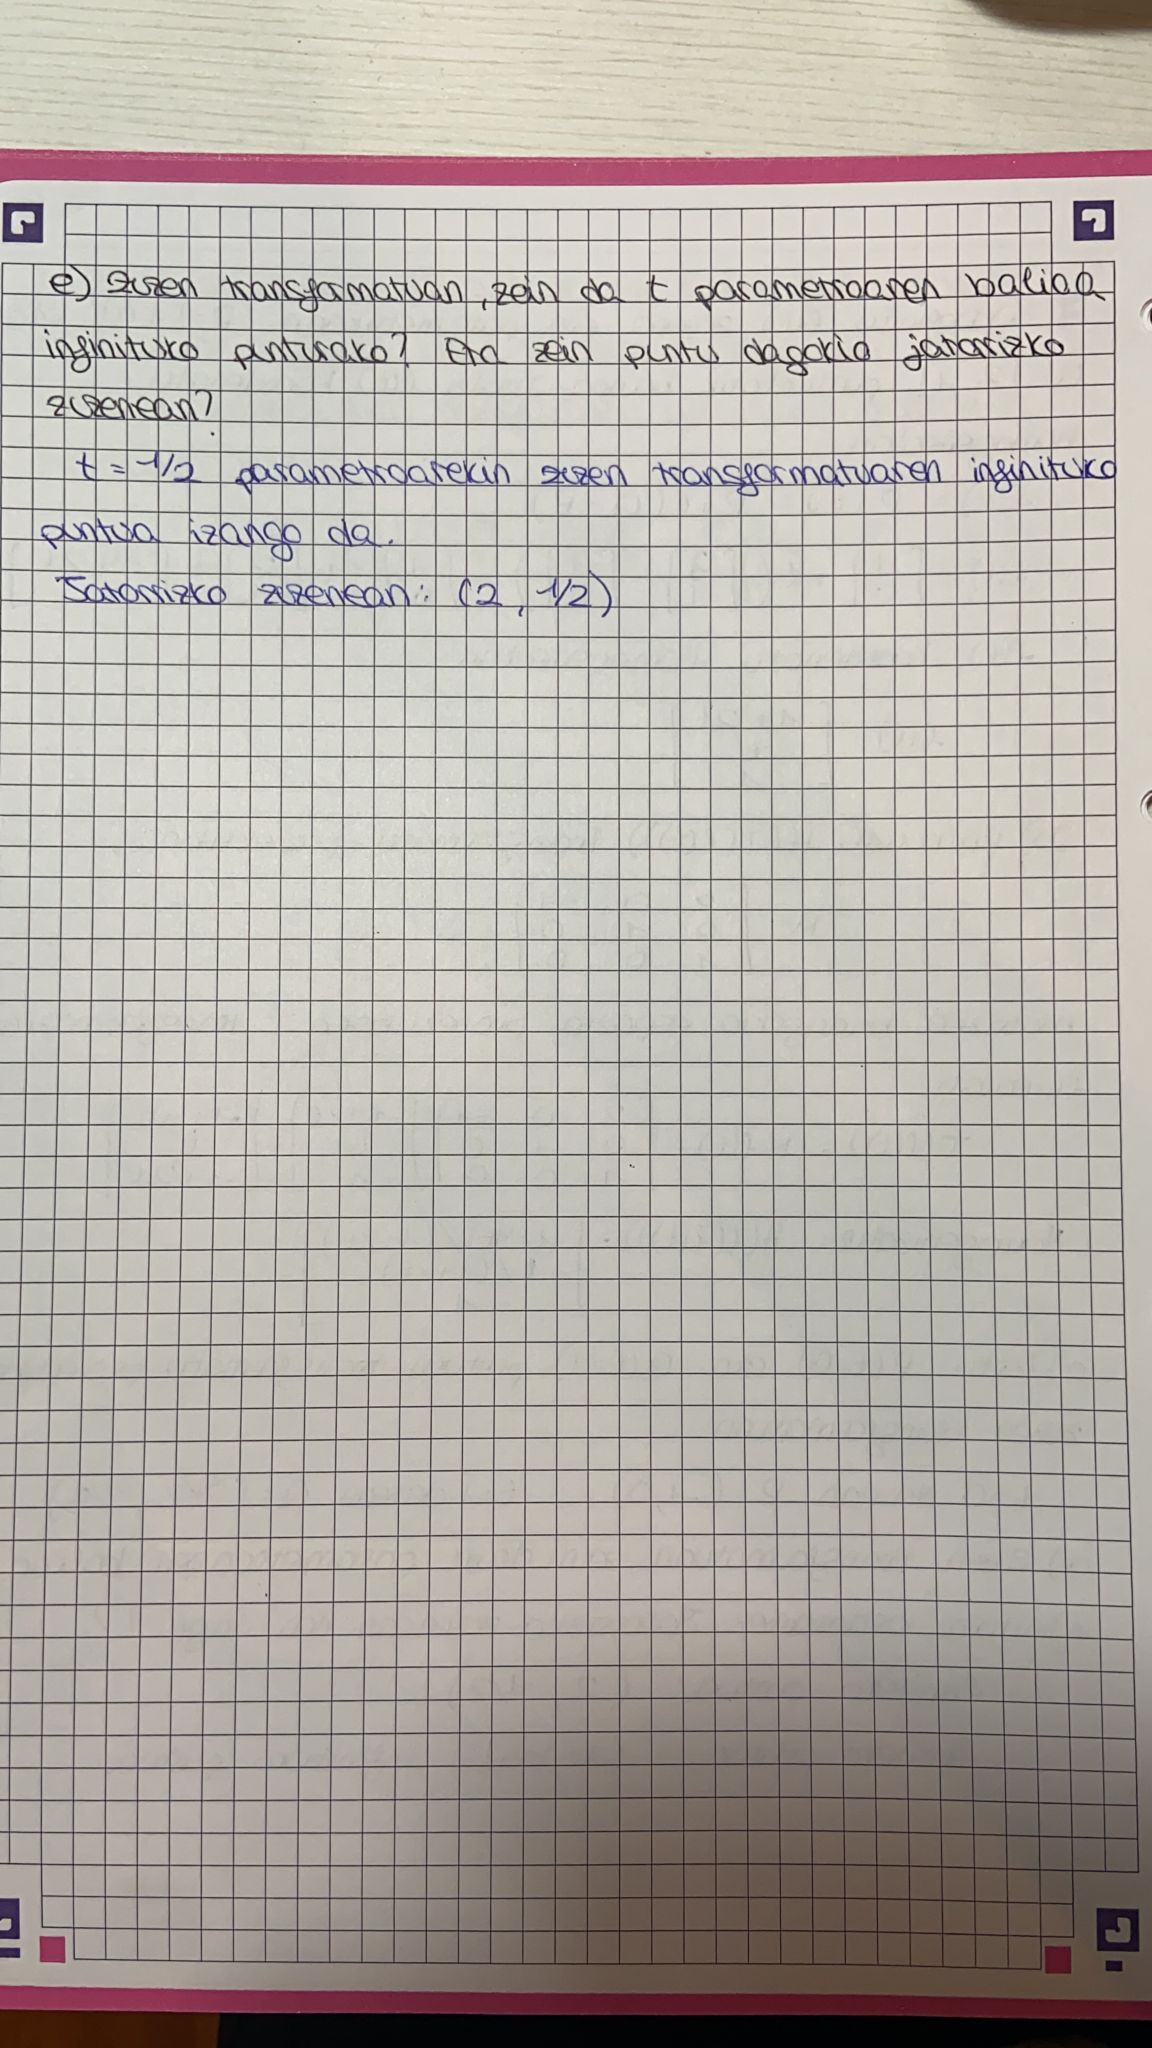 e) zuzen transformatuan, zein da t parametroaren balioa
infinituko punturako? Eta zein puntu dagokio jatorrizko
zuzenean?
t = -1/2 parametroarekin zuzen transformatuaren infinituko
puntua izango da.
Jatorrizko zuzenean: (2, 1/2)